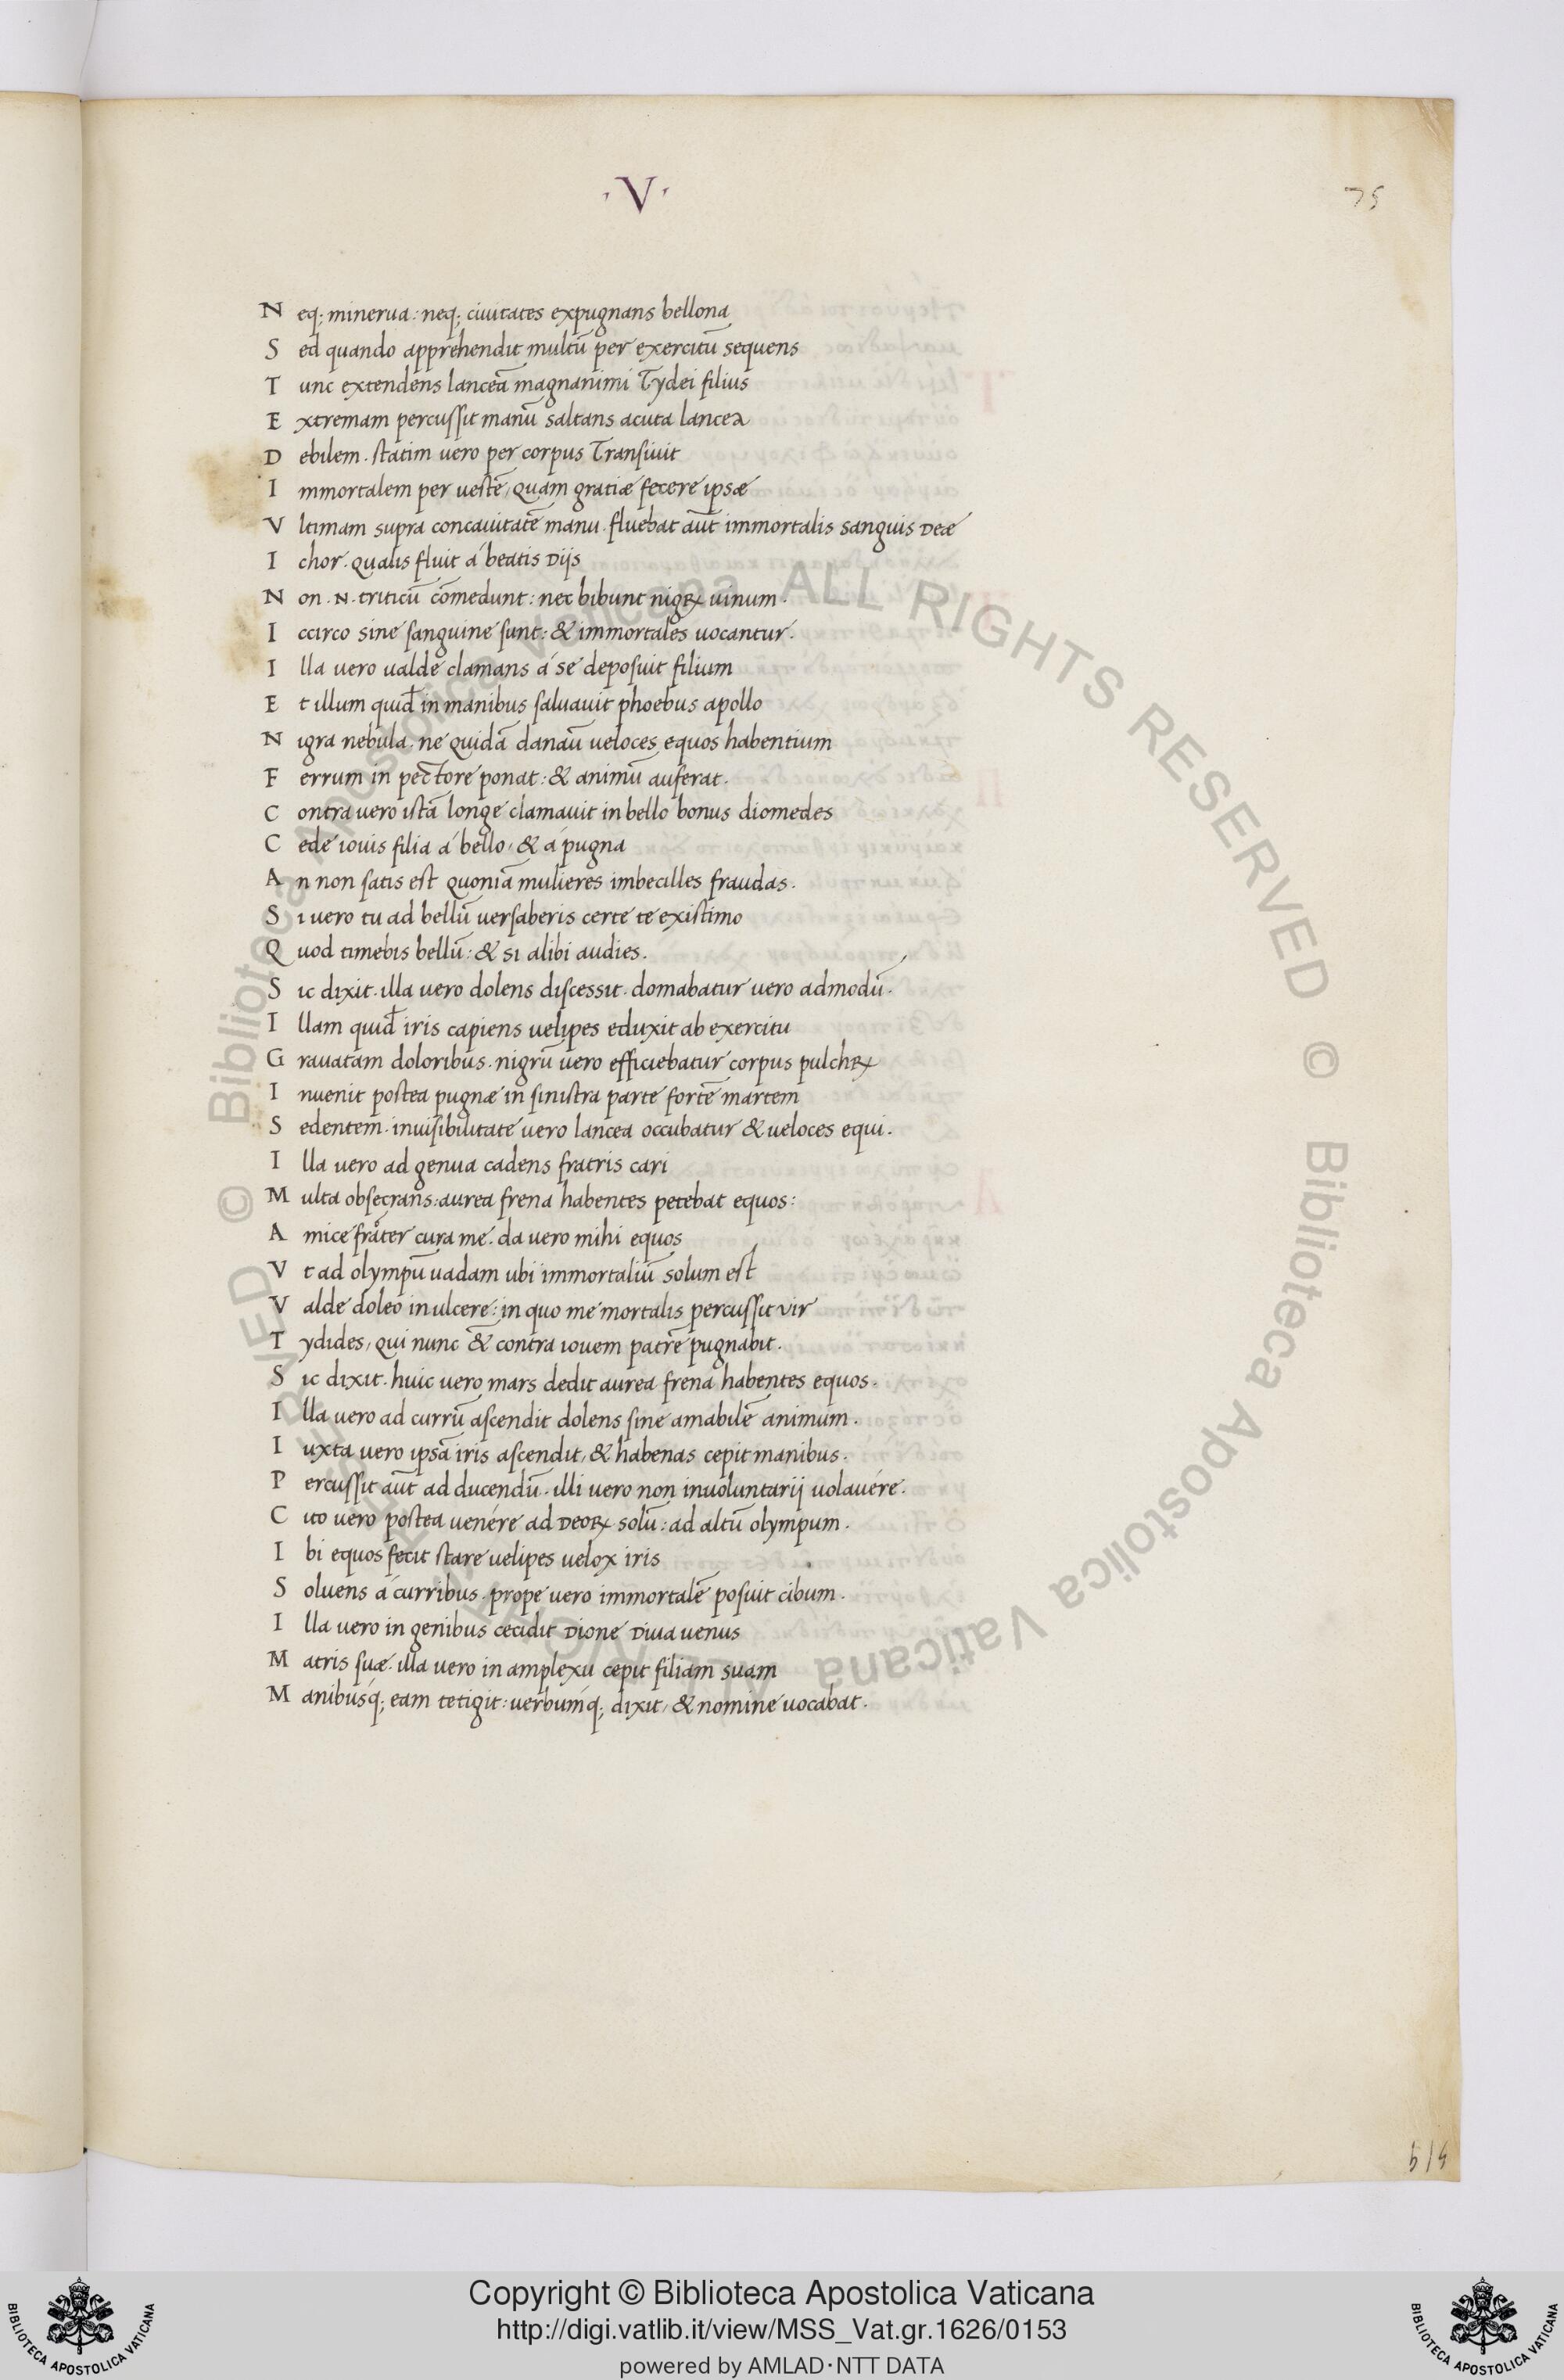 ·V·
75
Neq; minerua: neq; ciuitates expugnans bellona
Sed quando apprehendit multū per exercitū sequens
Tunc extendens lanceā magnanimi Tydei filius
Extremam percussit manū saltans acuta lancea
Debilem. statim uero per corpus Transiuit
Immortalem per uestē, quam gratiæ fecere ipsæ
Vltimam supra concauitatē manu. fluebat aūt immortalis sanguis deæ
Ichor. qualis fluit á beatis Dijs
Non .N. triticū cōmedunt: nec bibunt nigꝝ uinum.
Iccirco sine sanguine sunt: & immortales uocantur.
Illa uero ualde clamans á se deposuit filium
Et illum quid̄ in manibus saluauit phoebus apollo
Nigra nebula. ne quidā danaū ueloces equos habentium
Ferrum in pectore ponat: & animū auferat.
Contra uero istā longe clamauit in bello bonus diomedes
Cede iouis filia á bello, & á pugna
An non satis est quoniā mulieres imbecilles fraudas.
Si uero tu ad bellū uersaberis certe te existimo
Quod timebis bellū: & si alibi audies.
Sic dixit. illa uero dolens discessit. domabatur uero admodū.
Illam quid̄ iris capiens uelipes eduxit ab exercitu
Grauatam doloribus. nigrū uero efficiebatur corpus pulchꝝ
Inuenit postea pugnæ in sinistra parte fortē martem
Sedentem. inuisibilitate uero lancea occubatur & ueloces equi.
Illa uero ad genua cadens fratris cari
Multa obsecrans: aurea frena habentes petebat equos:
Amice frater cura me. da uero mihi equos
Vt ad olympū uadam ubi immortaliū solum est
Valde doleo in ulcere: in quo me mortalis percussit vir
Tydides, qui nunc & contra iouem patrē pugnabit.
Sic dixit. huic uero mars dedit aurea frena habentes equos.
Illa uero ad currū ascendit dolens sine amabilē animum.
Iuxta uero ipsā iris ascendit, & habenas cepit manibus.
Percussit aūt ad ducendū. illi uero non inuoluntarij uolauére.
Cito uero postea uenére ad deoꝝ solū: ad altū olympum.
Ibi equos fecit stare uelipes uelox iris
Soluens á curribus. prope uero immortalē posuit cibum.
Illa uero in genibus cecidit Dione Diua uenus
Matris suæ. illa uero in amplexu cepit filiam suam
Manibusq́; eam tetigit: uerbumq́; dixit, & nomine uocabat.
© Biblioteca Apostolica Vaticana ALL RIGHTS RESERVED © Biblioteca Apostolica Vaticana ALL RIGHTS RESERVED
Copyright © Biblioteca Apostolica Vaticana
http://digi.vatlib.it/view/MSS_Vat.gr.1626/0153
powered by AMLAD·NTT DATA
BIBLIOTECA APOSTOLICA VATICANA
BIBLIOTECA APOSTOLICA VATICANA